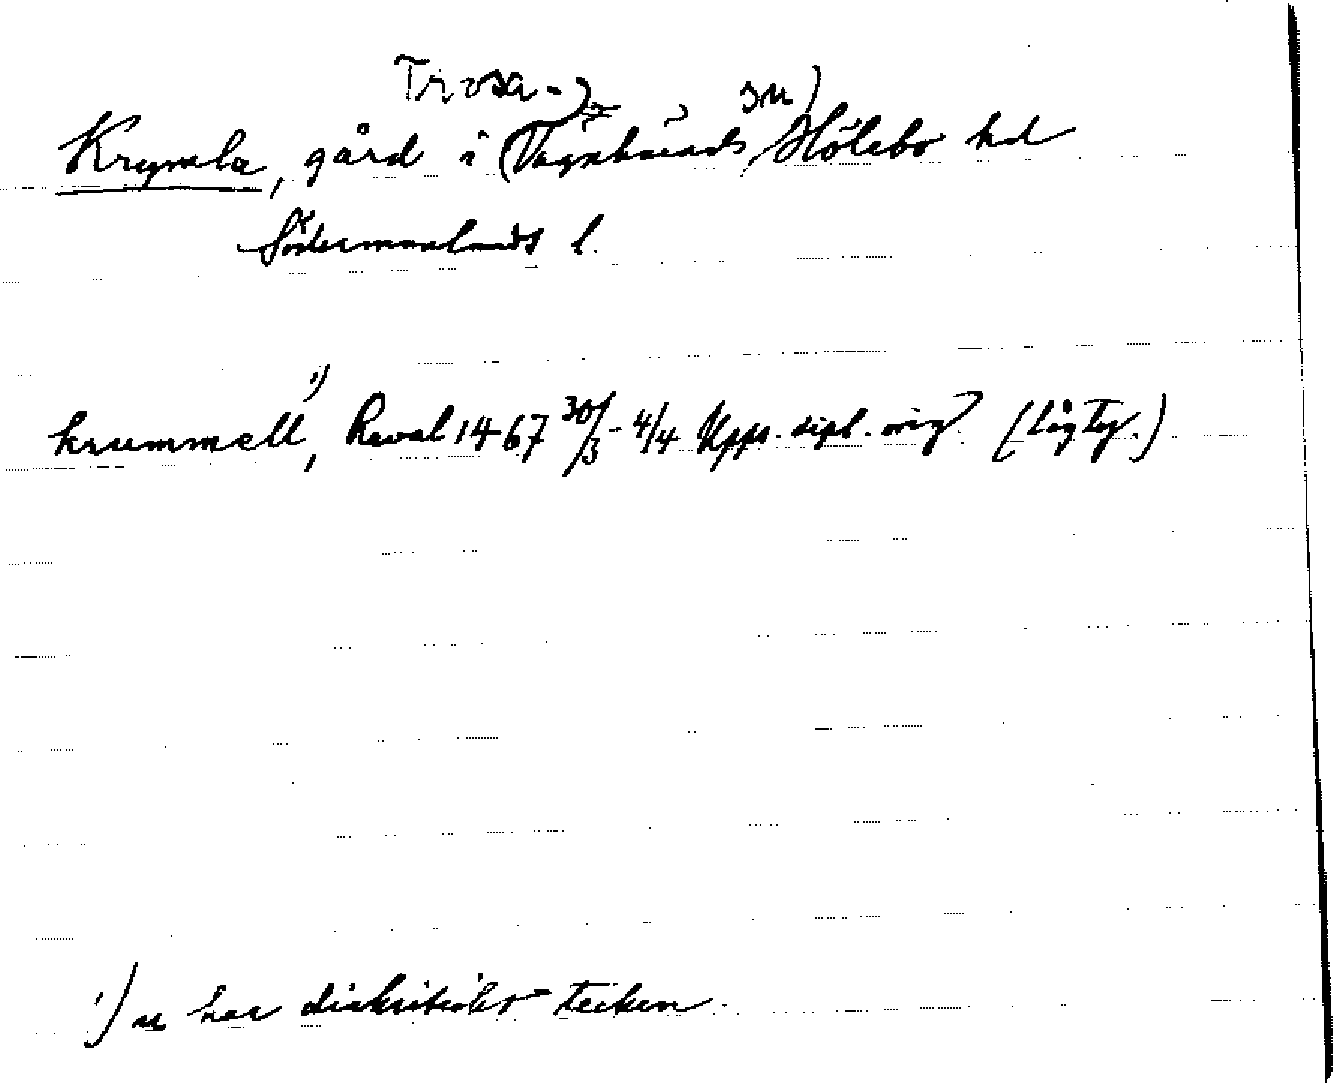 Trosa- sn)
Krymla, gård i (Vagnhärads Hölebo hd
Södermanlands l.
krummell 1), Reval 1467 30/3 - 4/4 Upps. dipl. orig (Lågty.)
1) u har diakritiskt tecken.